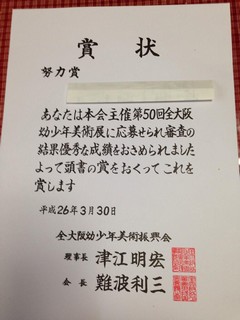 賞状
努力賞
あなたは本会主催第50回全大阪
幼少年美術展に応募せられ審査の
結果優秀な成績をおさめられました
よって頭書の賞をおくって これを
賞します
平成26年3月30日
全大阪幼少年美術振興会
理事長 津江明宏
会長 難波利三